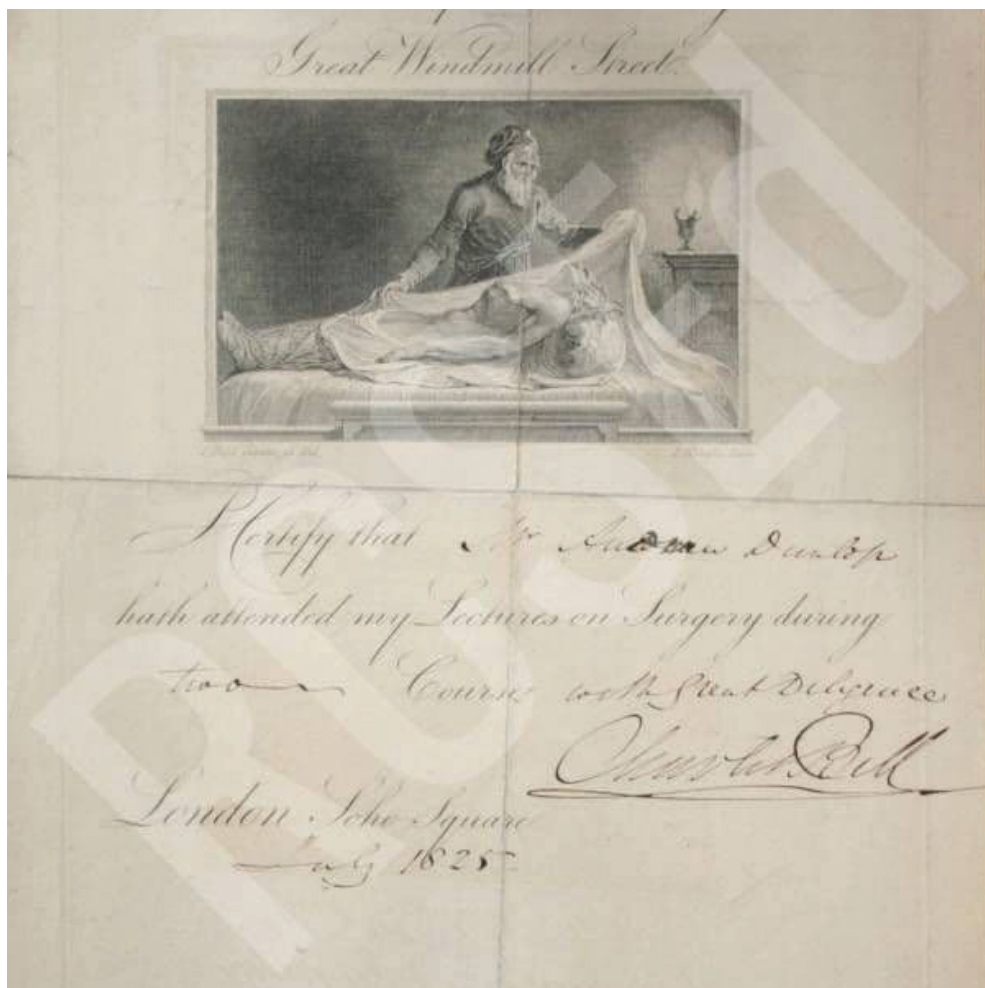 Great Windmill Street.
I Certify that Mr Andrew Dunlop
hath attended my Lectures on Surgery during
two Course with Great Diligence
Charles Bell
London Soho Square
July 1825
RCSEd